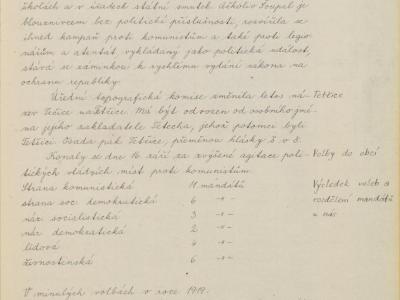 školách a v úřadech státní smutek. Ačkoliv Šoupal je
blouznivcem bez politické příslušnosti, rozvířila se
ihned kampaň proti komunistům a také proti legio-
nářům a atentát vykládaný jako politická událost,
stává se záminkou k rychlému vydání zákona na
ochranu republiky.
Úřední topografická komise změnila letos ná-
zev Tečice na Tetčice. Má být odvozen od osobního jmé-
na jejího zakladatele Tetecha, jehož potomci byli
Tetčici. Osada pak Tetčice, přeměnou hlásky
Tetčice
Konaly se dne 16. září za zvýšené agitace poli-
tických vládných míst proti komunistům.
Volby do obcí
Strana komunistická 11 mandátů
strana soc. demokratická 6 -"-
nár. socialistická 3 -"-
nár. demokratická 2 -"-
lidová 4 -"-
živnostenská 6 -"-
Výsledek voleb a
rozdělení mandátů
u nás
V minulých volbách v roce 1919.